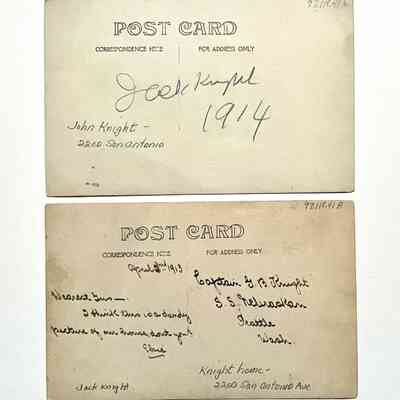 921R41A
POST CARD
CORRESPONDENCE HERE
FOR ADDRESS ONLY
Jack Knight
1914
John Knight -
2200 San Antonio
921R41B
POST CARD
CORRESPONDENCE HERE
FOR ADDRESS ONLY
April 2nd 1913
Dearest Gus -
I think this is a dandy
picture of our house, don't you?
Elsie
Captain G. B. Knight
S. S. Nebraskan
Seattle
Wash.
Jack Knight
Knight home -
2200 San Antonio Ave